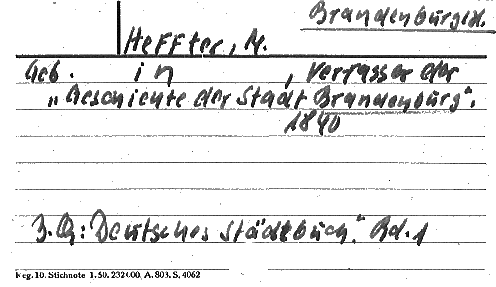 Brandenburg/H.
Heffter, M.
Geb. in , Verfasser der
„Geschichte der Stadt Brandenburg“.
1840
Z. Q.: Deutsches Städtbuch." Bd. 1
Reg. 10. Stichnote 1. 50. 232400, A. 803. S. 4062